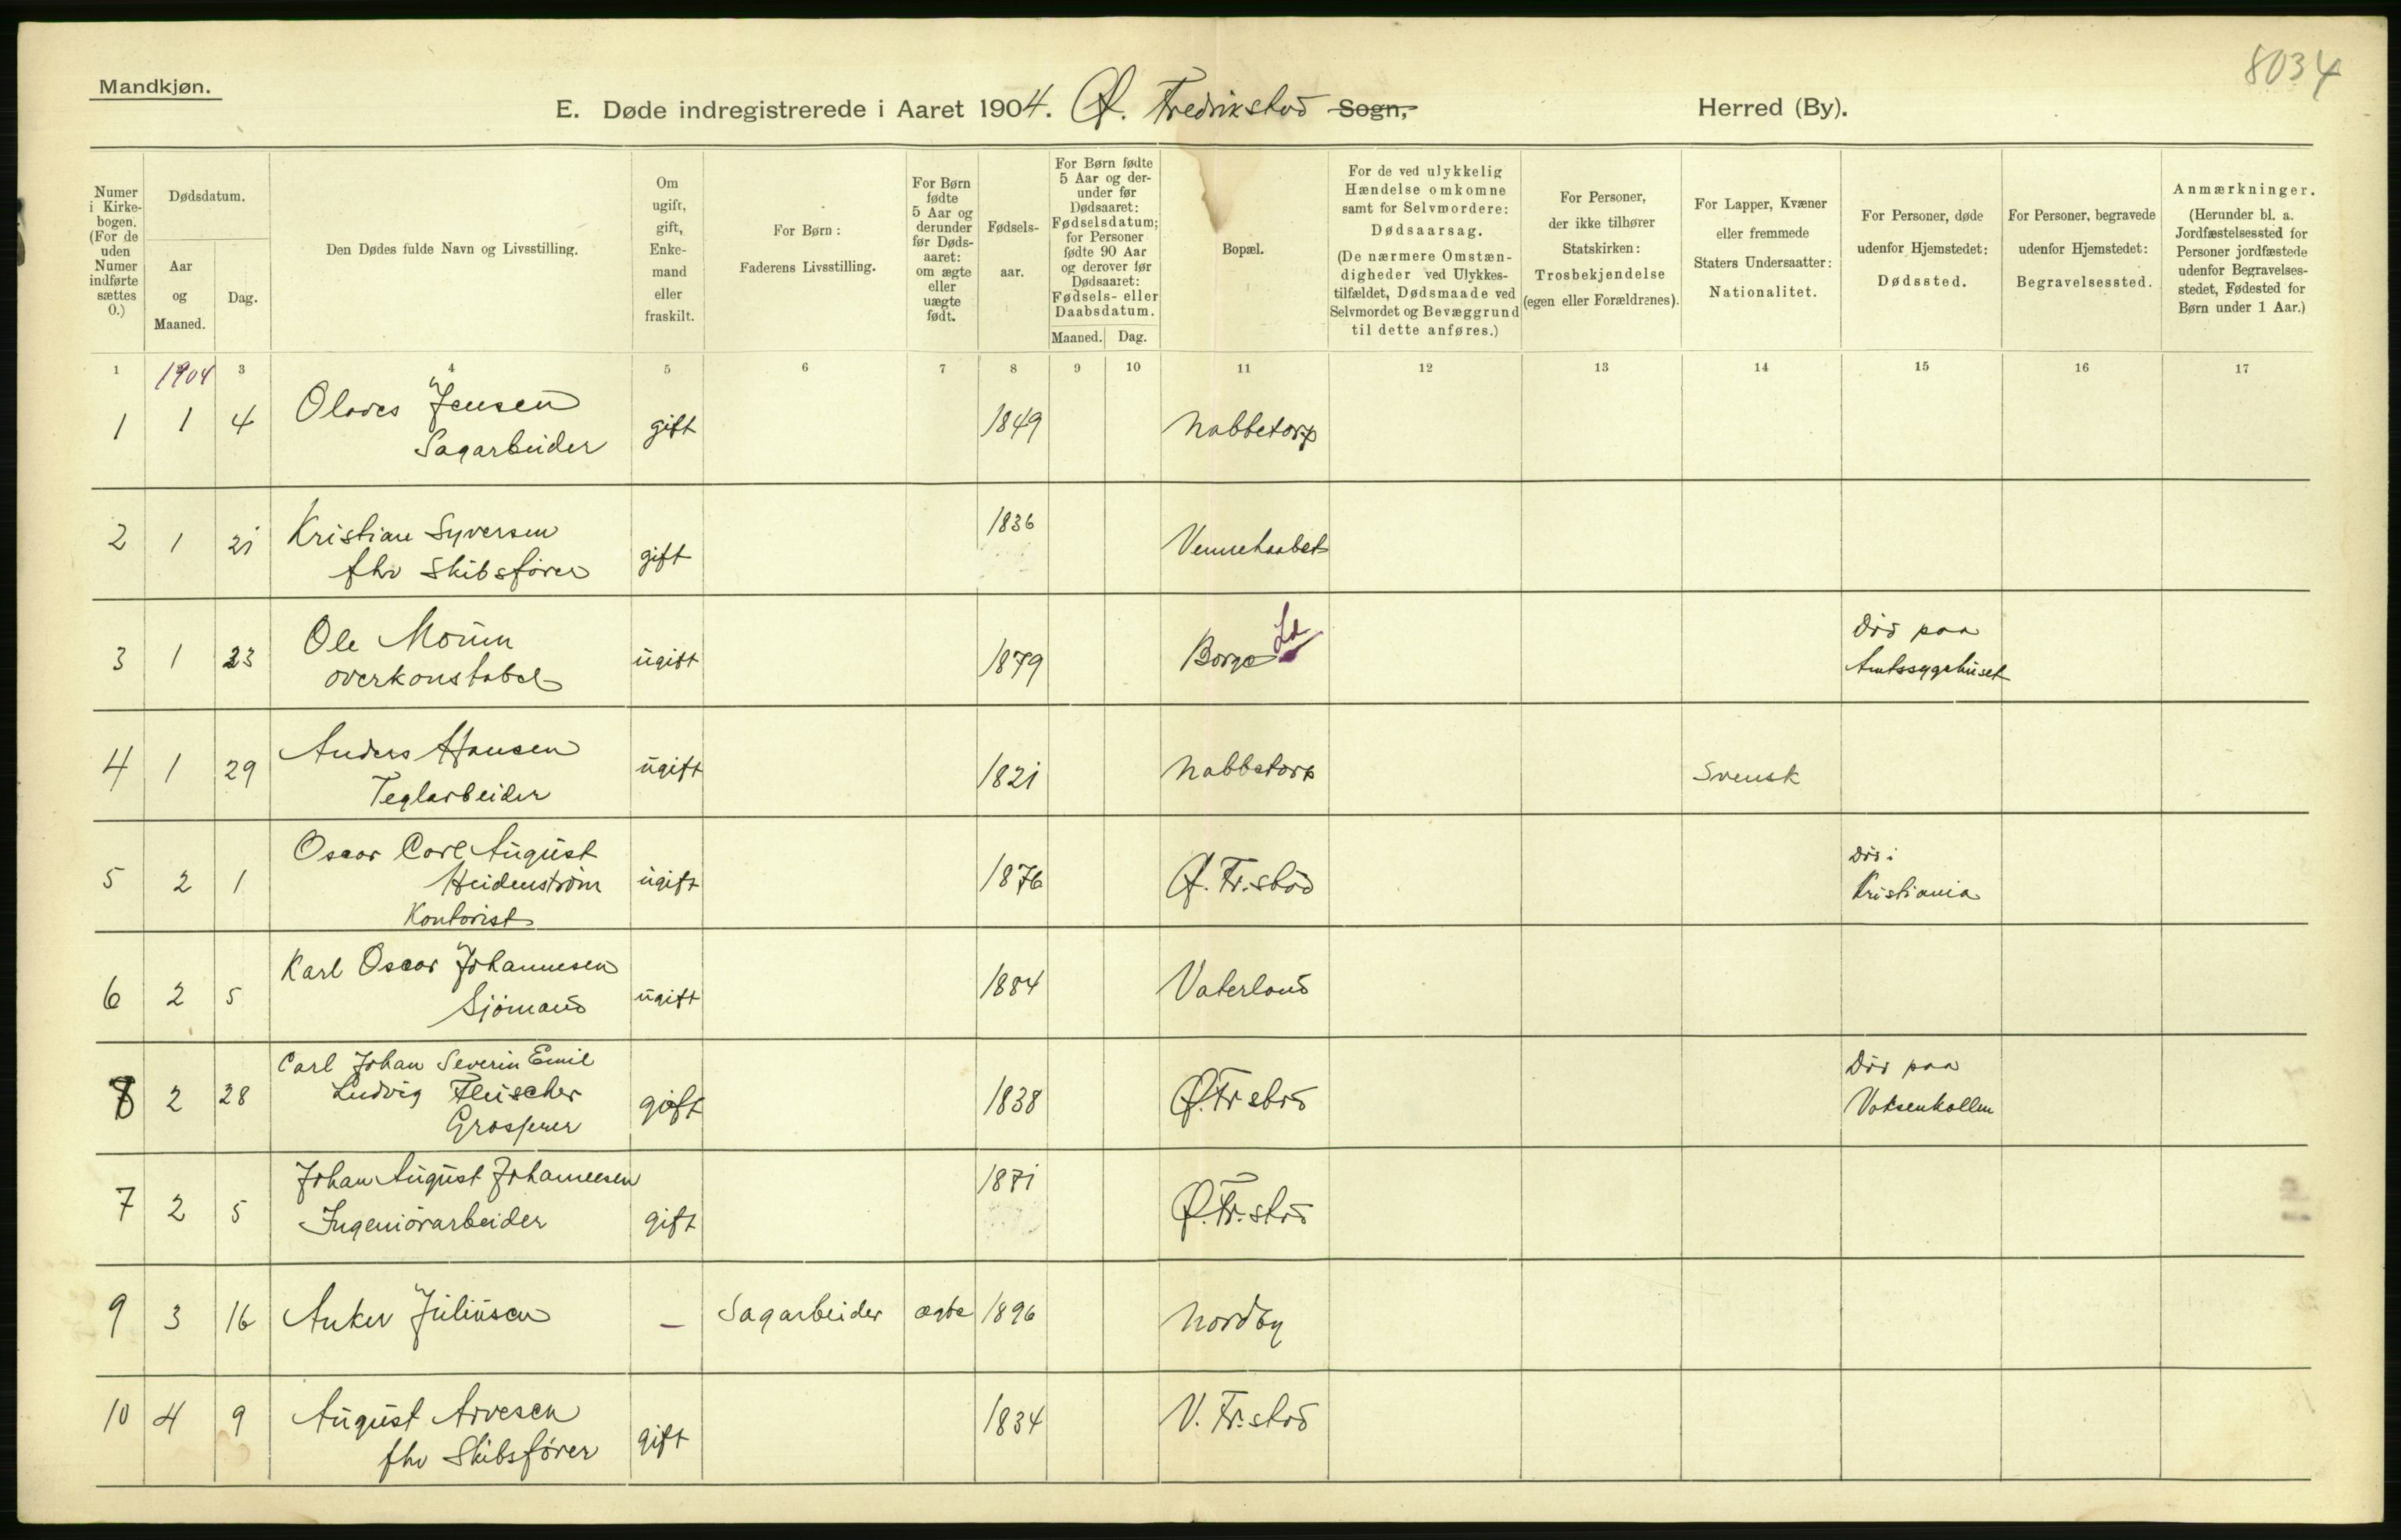 8034
Mandkjøn.
E. Døde indregistrerede i Aaret 1904. Ø. Fredrikstad Sogn, Herred (By).
Numer i Kirkebogen. (For de uden Numer indførte sættes 0.)
Dødsdatum.
Aar og Maaned.
Dag.
Den Dødes fulde Navn og Livsstilling.
Om ugift, gift, Enkemand eller fraskilt.
For Børn: Faderens Livsstilling.
For Børn fødte 5 Aar og derunder før Dødsaaret: om ægte eller uægte født.
Fødselsaar.
For Børn fødte 5 Aar og derunder før Dødsaaret: Fødselsdatum; for Personer fødte 90 Aar og derover før Dødsaaret: Fødsels- eller Daabsdatum.
Maaned. Dag.
Bopæl.
For de ved ulykkelig Hændelse omkomne samt for Selvmordere: Dødsaarsag. (De nærmere Omstændigheder ved Ulykkestilfældet, Dødsmaade ved Selvmordet og Bevæggrund til dette anføres.)
For Personer, der ikke tilhører Statskirken: Trosbekjendelse (egen eller Forældrenes).
For Lapper, Kvæner eller fremmede Staters Undersaatter: Nationalitet.
For Personer, døde udenfor Hjemstedet: Dødssted.
For Personer, begravede udenfor Hjemstedet: Begravelsessted.
Anmærkninger. (Herunder bl. a. Jordfæstelsessted for Personer jordfæstede udenfor Begravelsesstedet, Fødested for Børn under 1 Aar.)
1 1904 3 4 5 6 7 8 9 10 11 12 13 14 15 16 17
1 1 4 Olaves Jensen Sagarbeider gift 1849 Nabbetorp
2 1 21 Kristian Syversen fhv Skibsfører gift 1836 Vennehaabet
3 1 23 Ole Moum overkonstabel ugift 1879 Borge Ld Död paa Amtssygehuset
4 1 29 Anders Hansen Teglarbeider ugift 1821 Nabbetorp Svensk
5 2 1 Oscar Carl August Heidenström Kontorist ugift 1876 Ø. Fr.stad Död i Kristiania
6 2 5 Karl Oscar Johannesen Sjömand ugift 1884 Vaterland
8 2 28 Carl Johan Severin Emil Ludvig Fleischer Grosserer gift 1838 Ø. Fr stad Död paa Voksenkollen
7 2 5 Johan August Johannesen Ingeniörarbeider gift 1871 Ø. Fr.stad
9 3 16 Anker Juliusen — Sagarbeider ægte 1896 Nordby
10 4 9 August Arvesen fhv Skibsfører gift 1834 V. Fr.stad